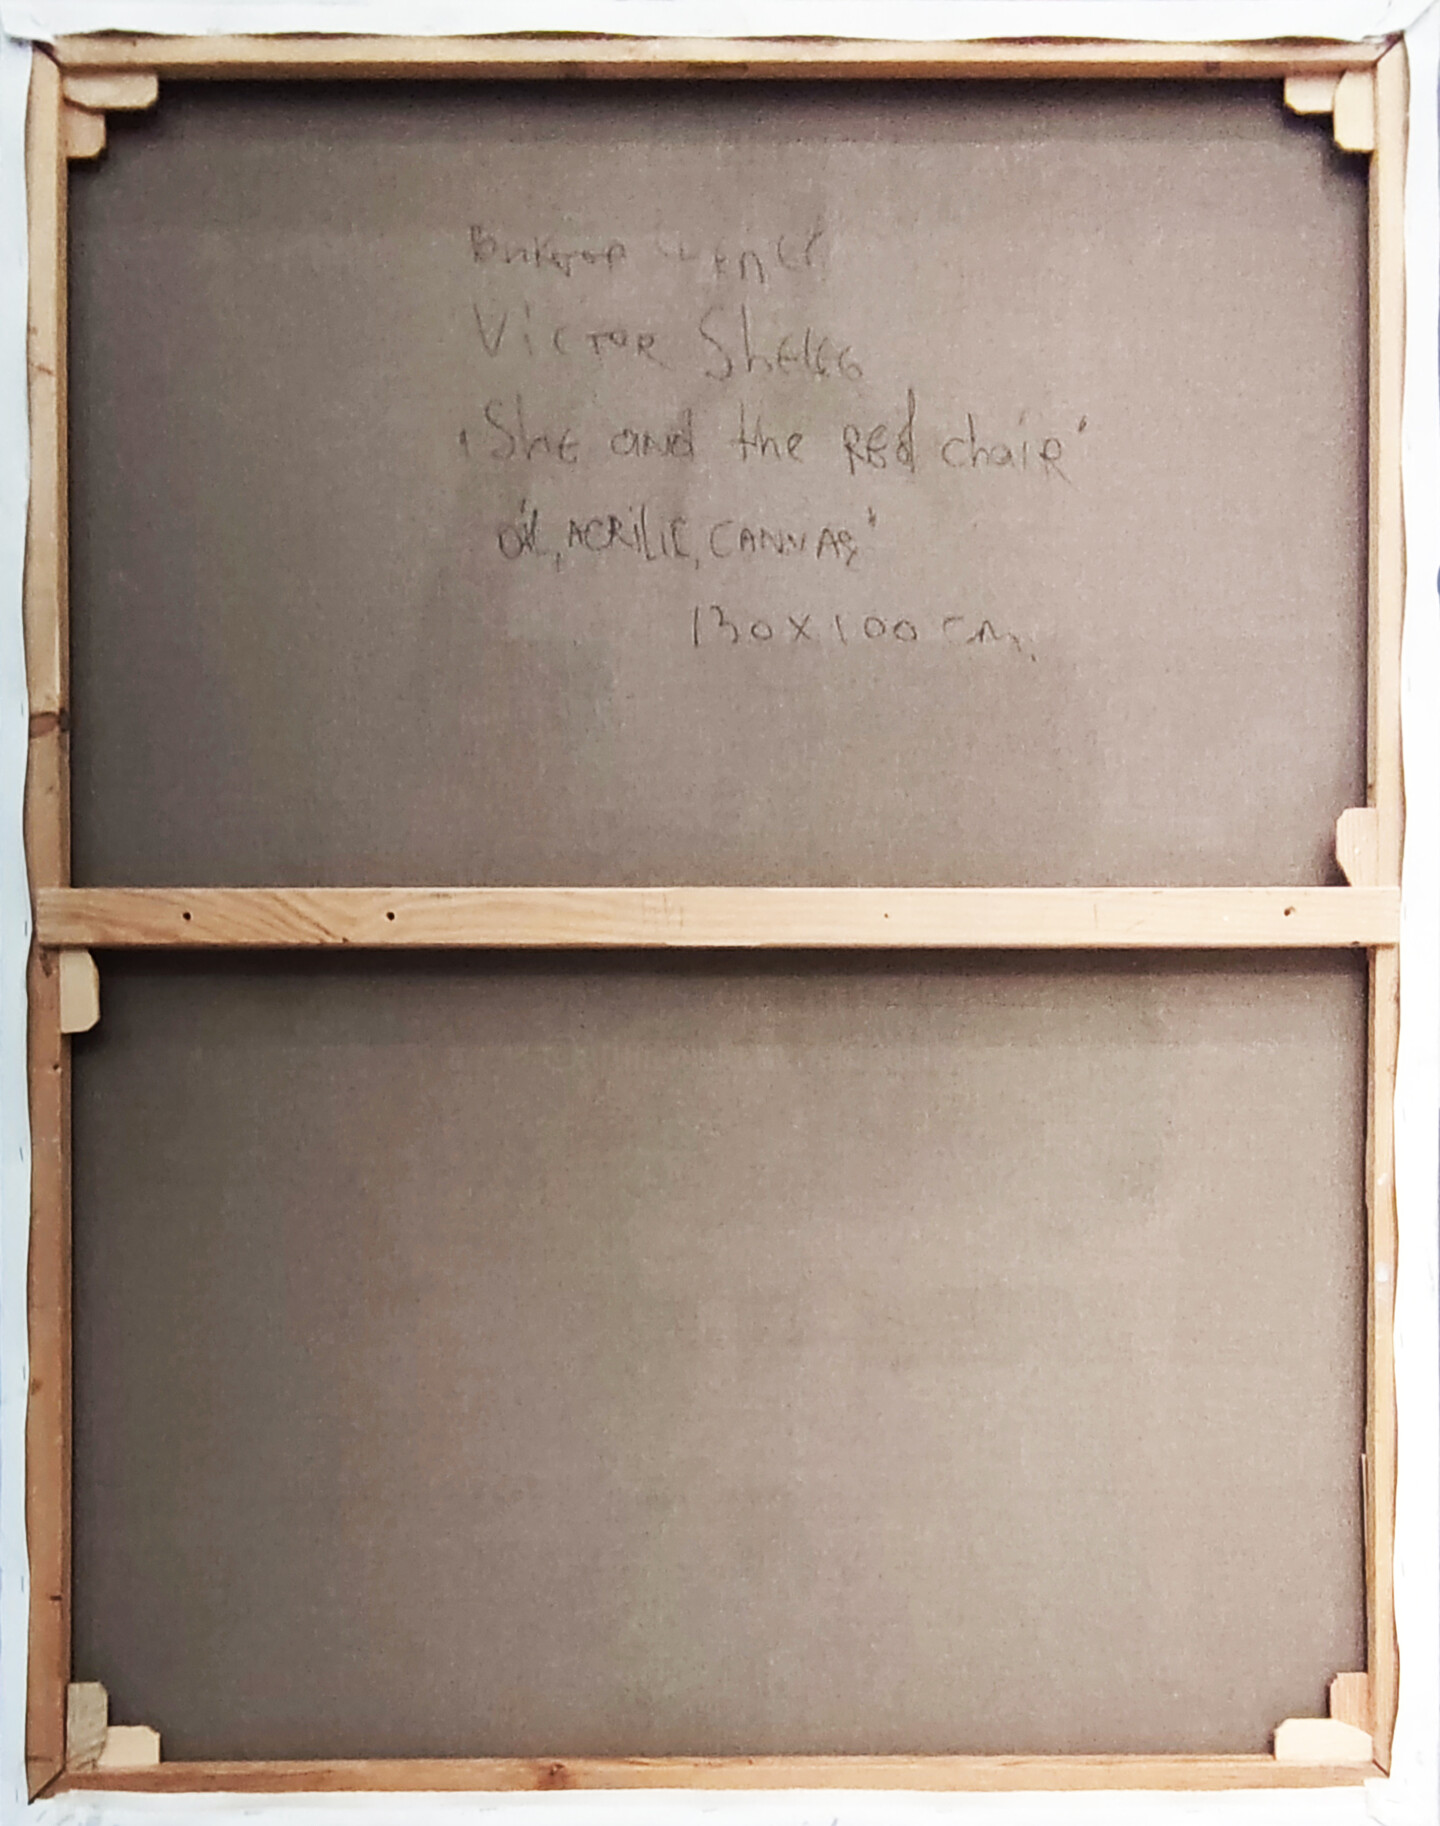 Виктор Шелег
Victor Sheleg
"She and the Red chair"
oil, ACRILIC, CANVAS"
130x100 cm.